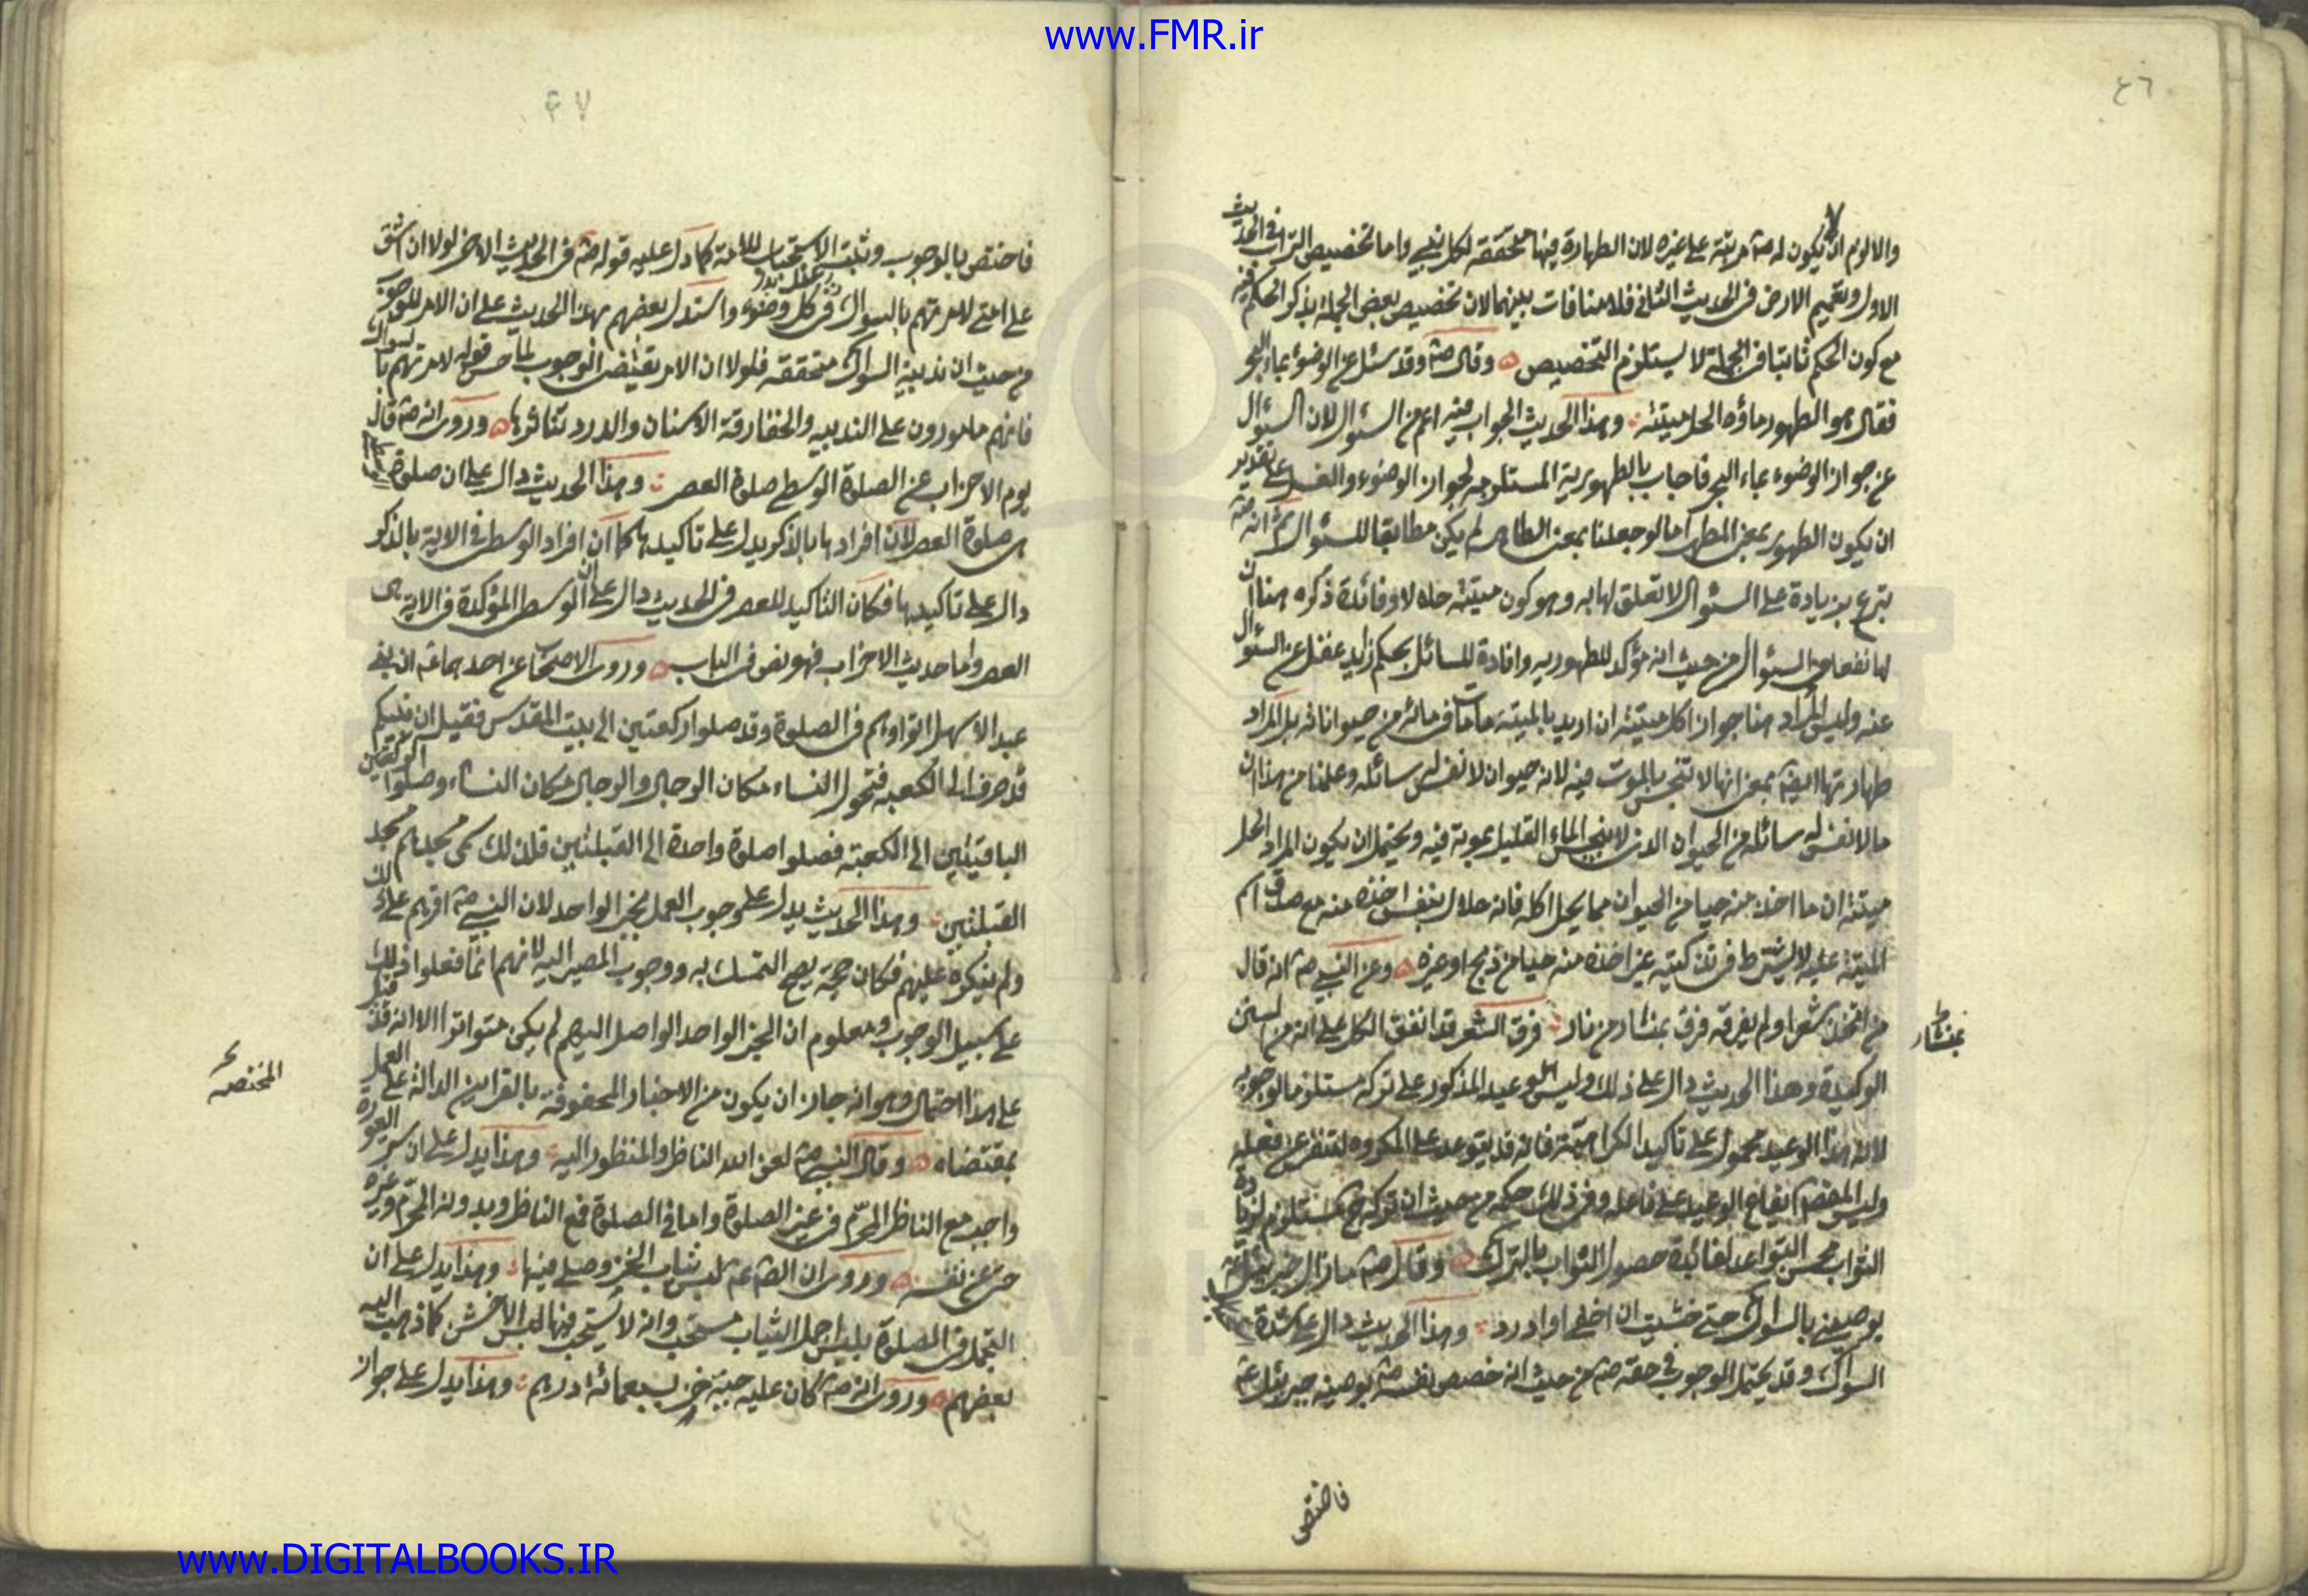 www.FMR.ir
٤٦
والا لزم ان لا يكون له صّه مرتبة على غيره لان الطهارة فيها متحققه لكل نبي واما تخصيص التراب في الحديث
الاول وتعميم الارض في الحديث الثاني فلا منافات بينهما لان تخصيص بعض الجملة بذكر الحكم فيه
مع كون الحكم ثابتا في الجملة لا يستلزم التخصيص ه وقال صّه وقد سئل عن الوضوء بماء البحر
فقال هو الطهور ماؤه الحل ميتته وهذا الحديث الجواب فيه اعم من السؤال لان السؤال
عن جواز الوضوء بماء البحر فاجاب بالطهورية المستلزمه لجواز الوضوء والغسل على تقدير
ان يكون الطهور بمعنى المطهر اما لو جعلنا بمعنى الطاهر لم يكن مطابقا للسئوال ثم انه صّه
تبرع بزيادة على السئوال لا تعلق لها به وهو كون ميتته حلالا وفائدة ذكره هنا ان
لها نفعا في السئوال من حيث انه مؤكد للطهوريه وافادة للسائل بحكم زايد غفل عن السئوال
عنه وليس المراد هنا جواز اكل ميتته ان اريد بالميتة ما مات في مائه من حيواناته بل المراد
طهارتها ايضا بمعنى انها لا تنجس بالموت فيه لانه حيوان لا نفس له سائله وعلمنا من هذا ان
ما لا نفس له سائله من الحيوان الذى لا ينجس الماء القليل بموته فيه ويحتمل ان يكون المراد الحل
ميتته ان ما اخذ منه حيا من الحيوان مما يحل اكله فانه حلال بنفس اخذه منه مع صدق اسم
الميتة عليه لا يشترط في تذكيته غير اخذه منه حيا من ذبح او غيره ه وعن النبي صّه انه قال
من اتخذ شعرا ولم يفرقه فرق بمنشار من نار فرق الشعر قد اتفق الكل على انه من السنن
بمنشار ط
الوكيدة وهذا الحديث دال على ذلك وليس الوعيد المذكور على تركه مستلزما لوجوبه
لان هذا الوعيد محمول على تاكيد الكراهية فانه قد يتوعد على المكروه لتنفر عن فعله
وليس المقصد ايقاع الوعيد على فاعله وفي ذلك حكمه من حيث ان تركه مستلزم لزيادة
الثواب فحسن التواعد لفائدة حصول الثواب بالترك ه وقال صّه ما زال جبرئيل عّه
يوصيني بالسواك حتى خشيت ان احفى او ادرد وهذا الحديث دال على شدة
السواك وقد يحتمل الوجوب في حقه صّه من حيث انه خصص نفسه صّه بوصية جبرئيل عّه
فاختص
٤٧
فاختص بالوجوب وثبت الاستحباب للامة كما دل عليه قوله صّه في الحديث الاخر لولا ان اشق
على امتي لامرتهم بالسواك في كل وضوء واستدل بعضهم بهذا الحديث على ان الامر للوجوب
من حيث ان ندبية السواك متحققه فلولا ان الامر يقتضي الوجوب لما حسن قوله لامرتهم بالسواك
فانهم مامورون على الندبيه والحفا رقة الاسنان والدرد تناثرها ه وروى انه صّه قال
يوم الاحزاب عن الصلوة الوسطى صلوة العصر وهذا الحديث دال على ان صلوة
هى صلوة العصر لان افرادها بالذكر يدل على تاكيدها كما ان افراد الوسطى في الاية بالذكر
دال على تاكيدها فكان التاكيد للعصر في الحديث دال على ان الوسطى المؤكدة في الاية هى
العصر واما حديث الاحزاب فهو نص في الباب ه وروى الاصحاب عن احدهما عّه ان بني
عبد الاشهل اتوا وهم في الصلوة وقد صلوا ركعتين الى بيت المقدس فقيل ان نبيكم
قد صرف الى الكعبه فتحول النساء مكان الرجال والرجال مكان النساء وصلوا الركعتين
الباقيتين الى الكعبة فصلوا صلوة واحدة الى القبلتين فلذلك سمى مسجدهم مسجد
القبلتين وهذا الحديث يدل على وجوب العمل بخبر الواحد لان النبي صّه اقرهم على ذلك
ولم ينكره عليهم فكان حجة يصح التمسك به ووجوب المصير اليه لانهم انما فعلوا ذلك
على سبيل الوجوب ومعلوم ان الخبر الواحد الواصل اليهم لم يكن متواترا الا انه قد قيل
على هذا احتمال وهو انه جاز ان يكون من الاخبار المحفوفة بالقراين الدالة على العمل
بمقتضاه ه وقال النبي صّه لعن الله الناظر والمنظور اليه وهذا يدل على ان ستر العورة
واجب مع الناظر المحرّم في غير الصلوة واما في الصلوة فمع الناظر وبدونه المحرّم وغيره
حتى عن نفسه ه وروى ان الصّه عّه لبس ثياب الخز وصلى فيها وهذا يدل على ان
التجمل في الصلوة بلبس اجمل الثياب مستحب وانه لا يستحب فيها لبس الاخشن كما ذهب اليه
بعضهم ه وروى انه صّه كان عليه جبة خز بسبعمائة درهم وهذا يدل على جواز
www.DIGITALBOOKS.IR